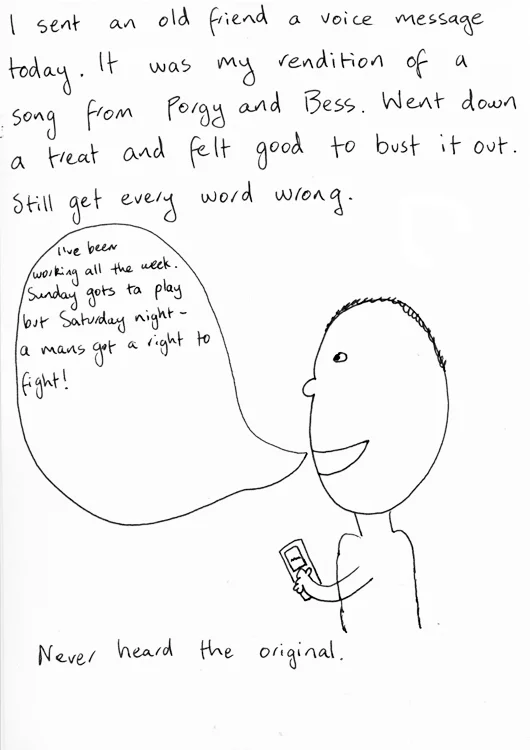 I sent an old friend a voice message
today. It was my rendition of a
song from Porgy and Bess. Went down
a treat and felt good to bust it out.
Still get every word wrong.
I've been
working all the week.
Sunday gots ta play
but Saturday night -
a mans got a right to
fight!
Never heard the original.